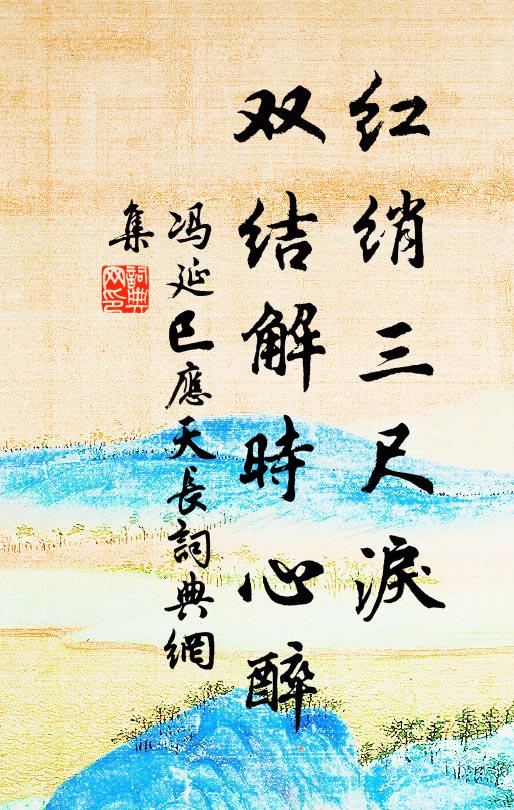 红绡三尺淚
双结解時心醉
冯延巳應天長詞典網
集
詞典
网印